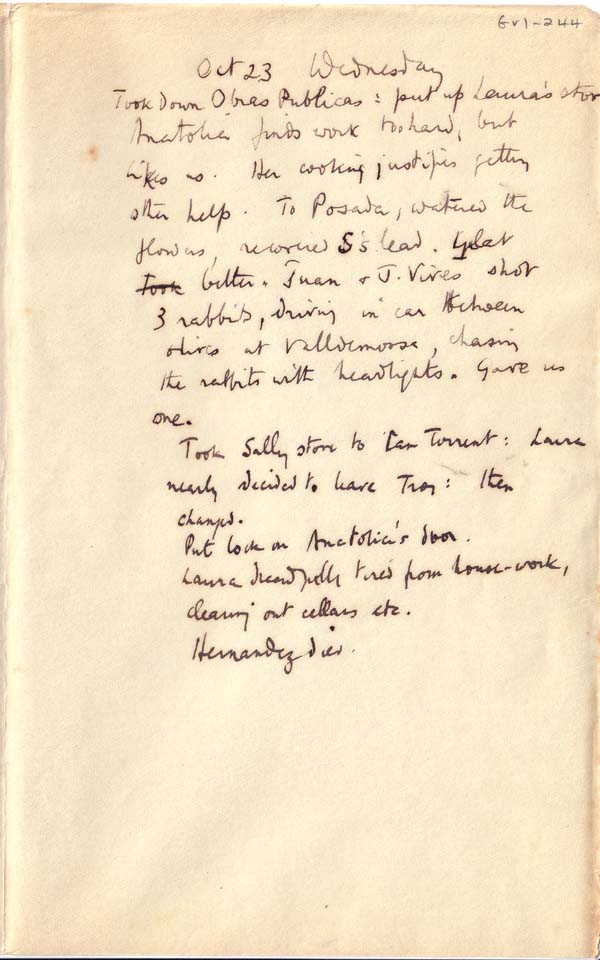 GV1-244
Oct 23 Wednesday
Took down Obras Publicas : put up Laura's stove
Anatolia finds work too hard, but
likes us. Her cooking justifies getting
other help. To Posada, watered the
flowers, recovered S's lead.
Took better. Juan & J. Vives shot
3 rabbits, driving in car between
olives at Valldemossa, chasing
the rabbits with headlights. Gave us
one.
Took Sally stove to Can Torrent : Laura
nearly decided to leave Troy : then
changed.
Put lock on Anatolia's door.
Laura dreadfully tired from house-work,
clearing out cellars etc.
Hernandez died.